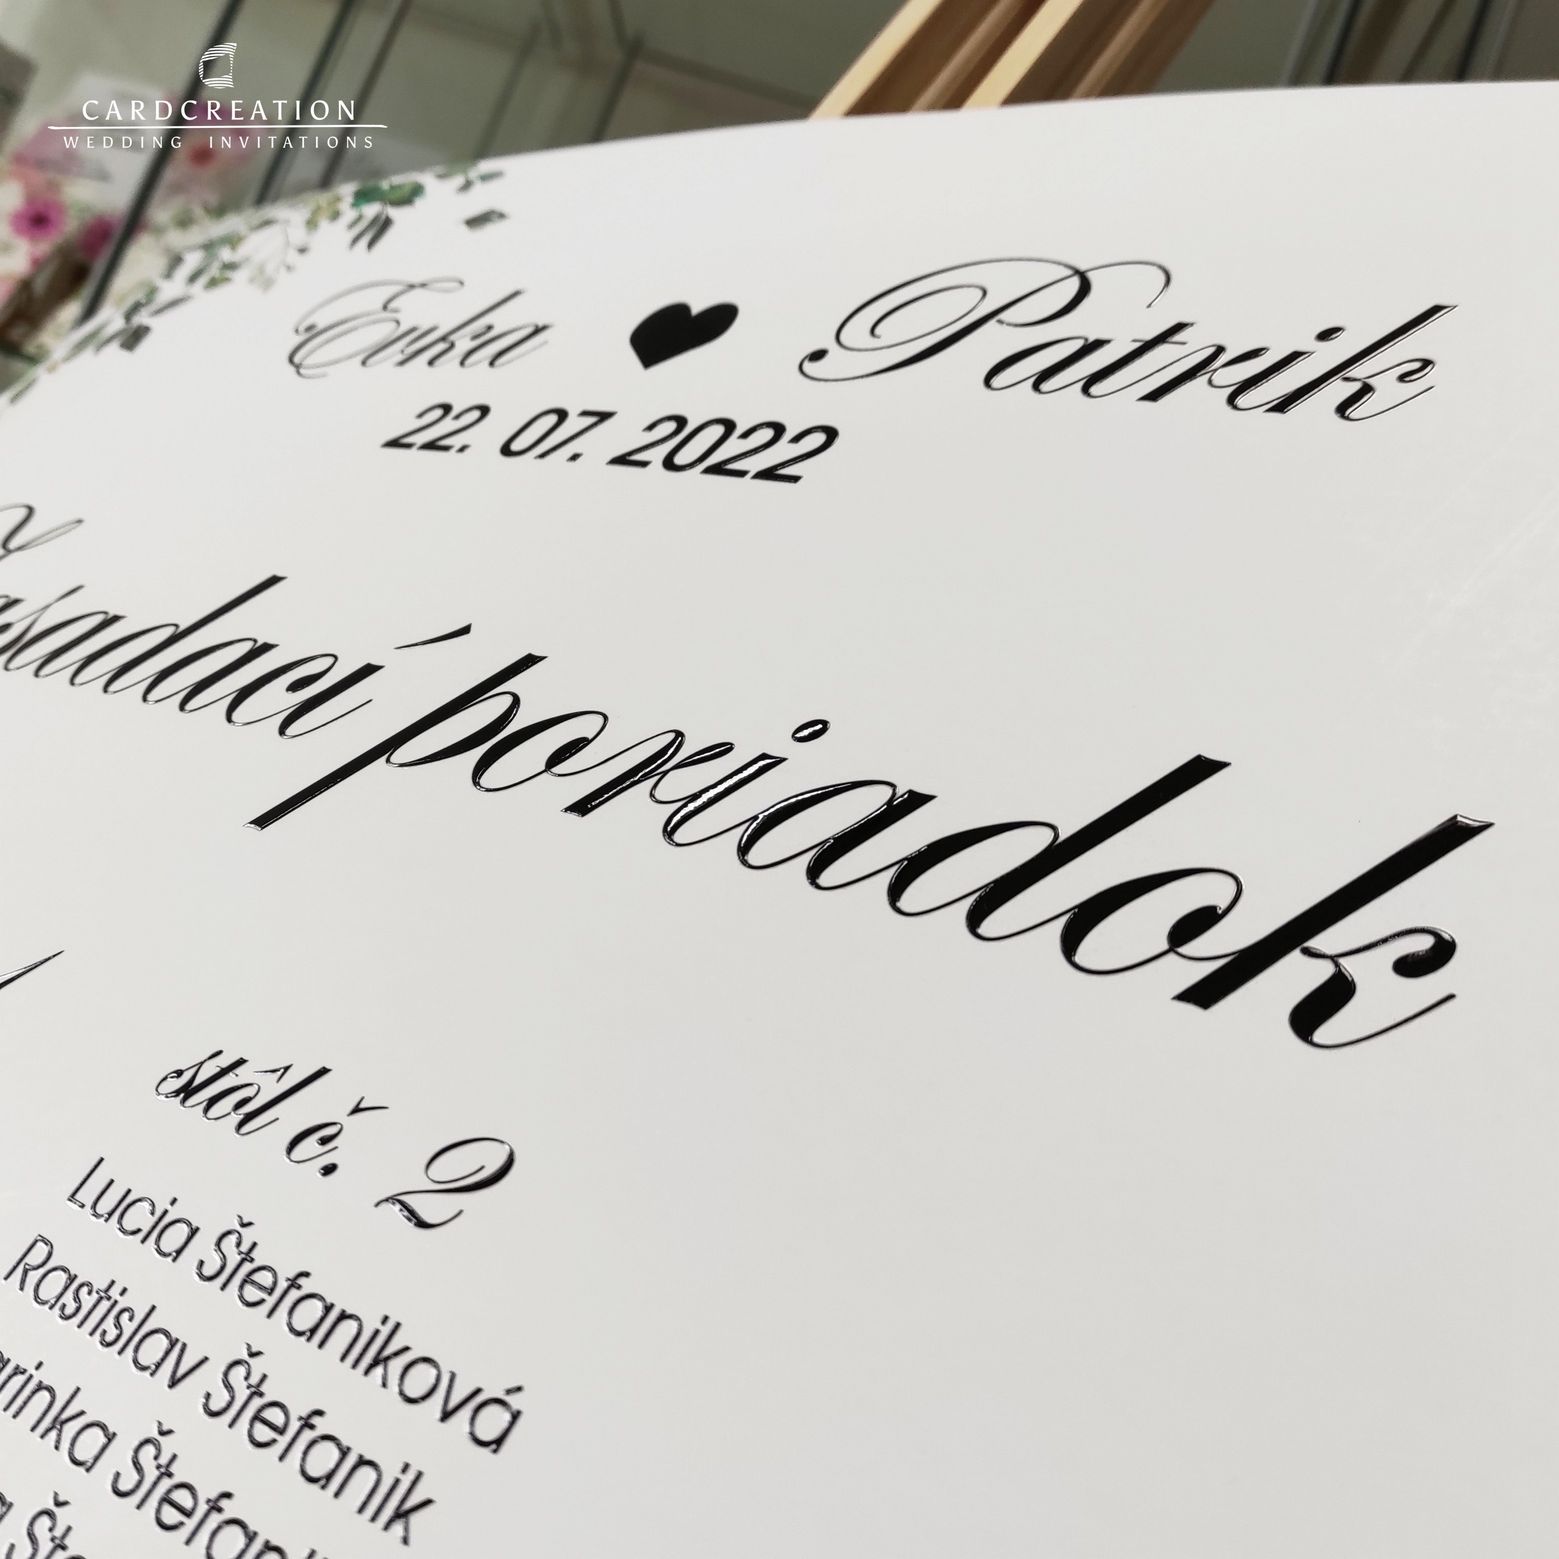 CARDCREATION
WEDDING INVITATIONS
Evka ♥ Patrik
22. 07. 2022
Zasadací poriadok
stôl č. 2
Lucia Štefaniková
Rastislav Štefanik